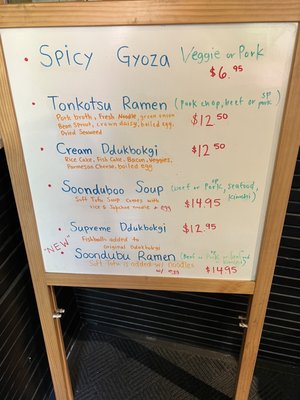 Spicy Gyoza Veggie or Pork
$6.95
Tonkotsu Ramen (Pork chop, beef or SP pork)
Pork broth, Fresh Noodle, green onion
Bean Sprout, crown daisy, boiled egg,
Dried Seaweed
$12.50
Cream Ddukbokgi $12.50
Rice Cake, Fish Cake, Bacon, Veggies,
Parmesan Cheese, boiled egg
Soonduboo Soup (beef or SP pork, Seafood,
Kimchi)
Soft Tofu Soup comes with
rice & Japchae noodle & egg
$14.95
Supreme Ddukbokgi $12.95
Fishballs added to
Original Ddukbokgi
"NEW"
Soondubu Ramen (Beef or
Soft Tofu is added to Noodles
w/ egg
$14.95